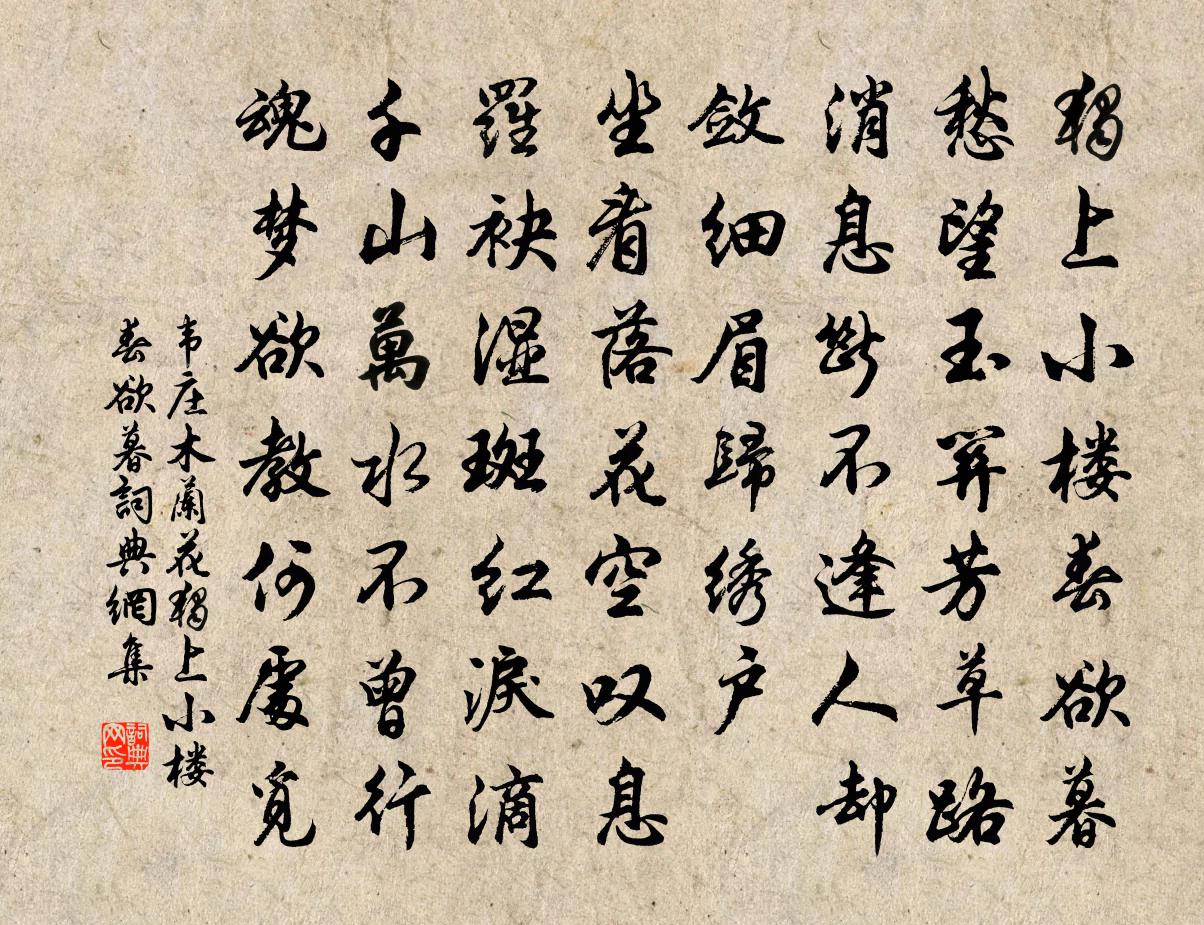 獨上小楼春欲暮
愁望玉關芳草路
消息斷不逢人却
敛细眉歸绣户
坐看落花空叹息
羅袂湿斑红淚滴
千山萬水不曾行
魂梦欲教何處觅
韦庄木蘭花獨上小楼
春欲暮詞典網集
詞典网印